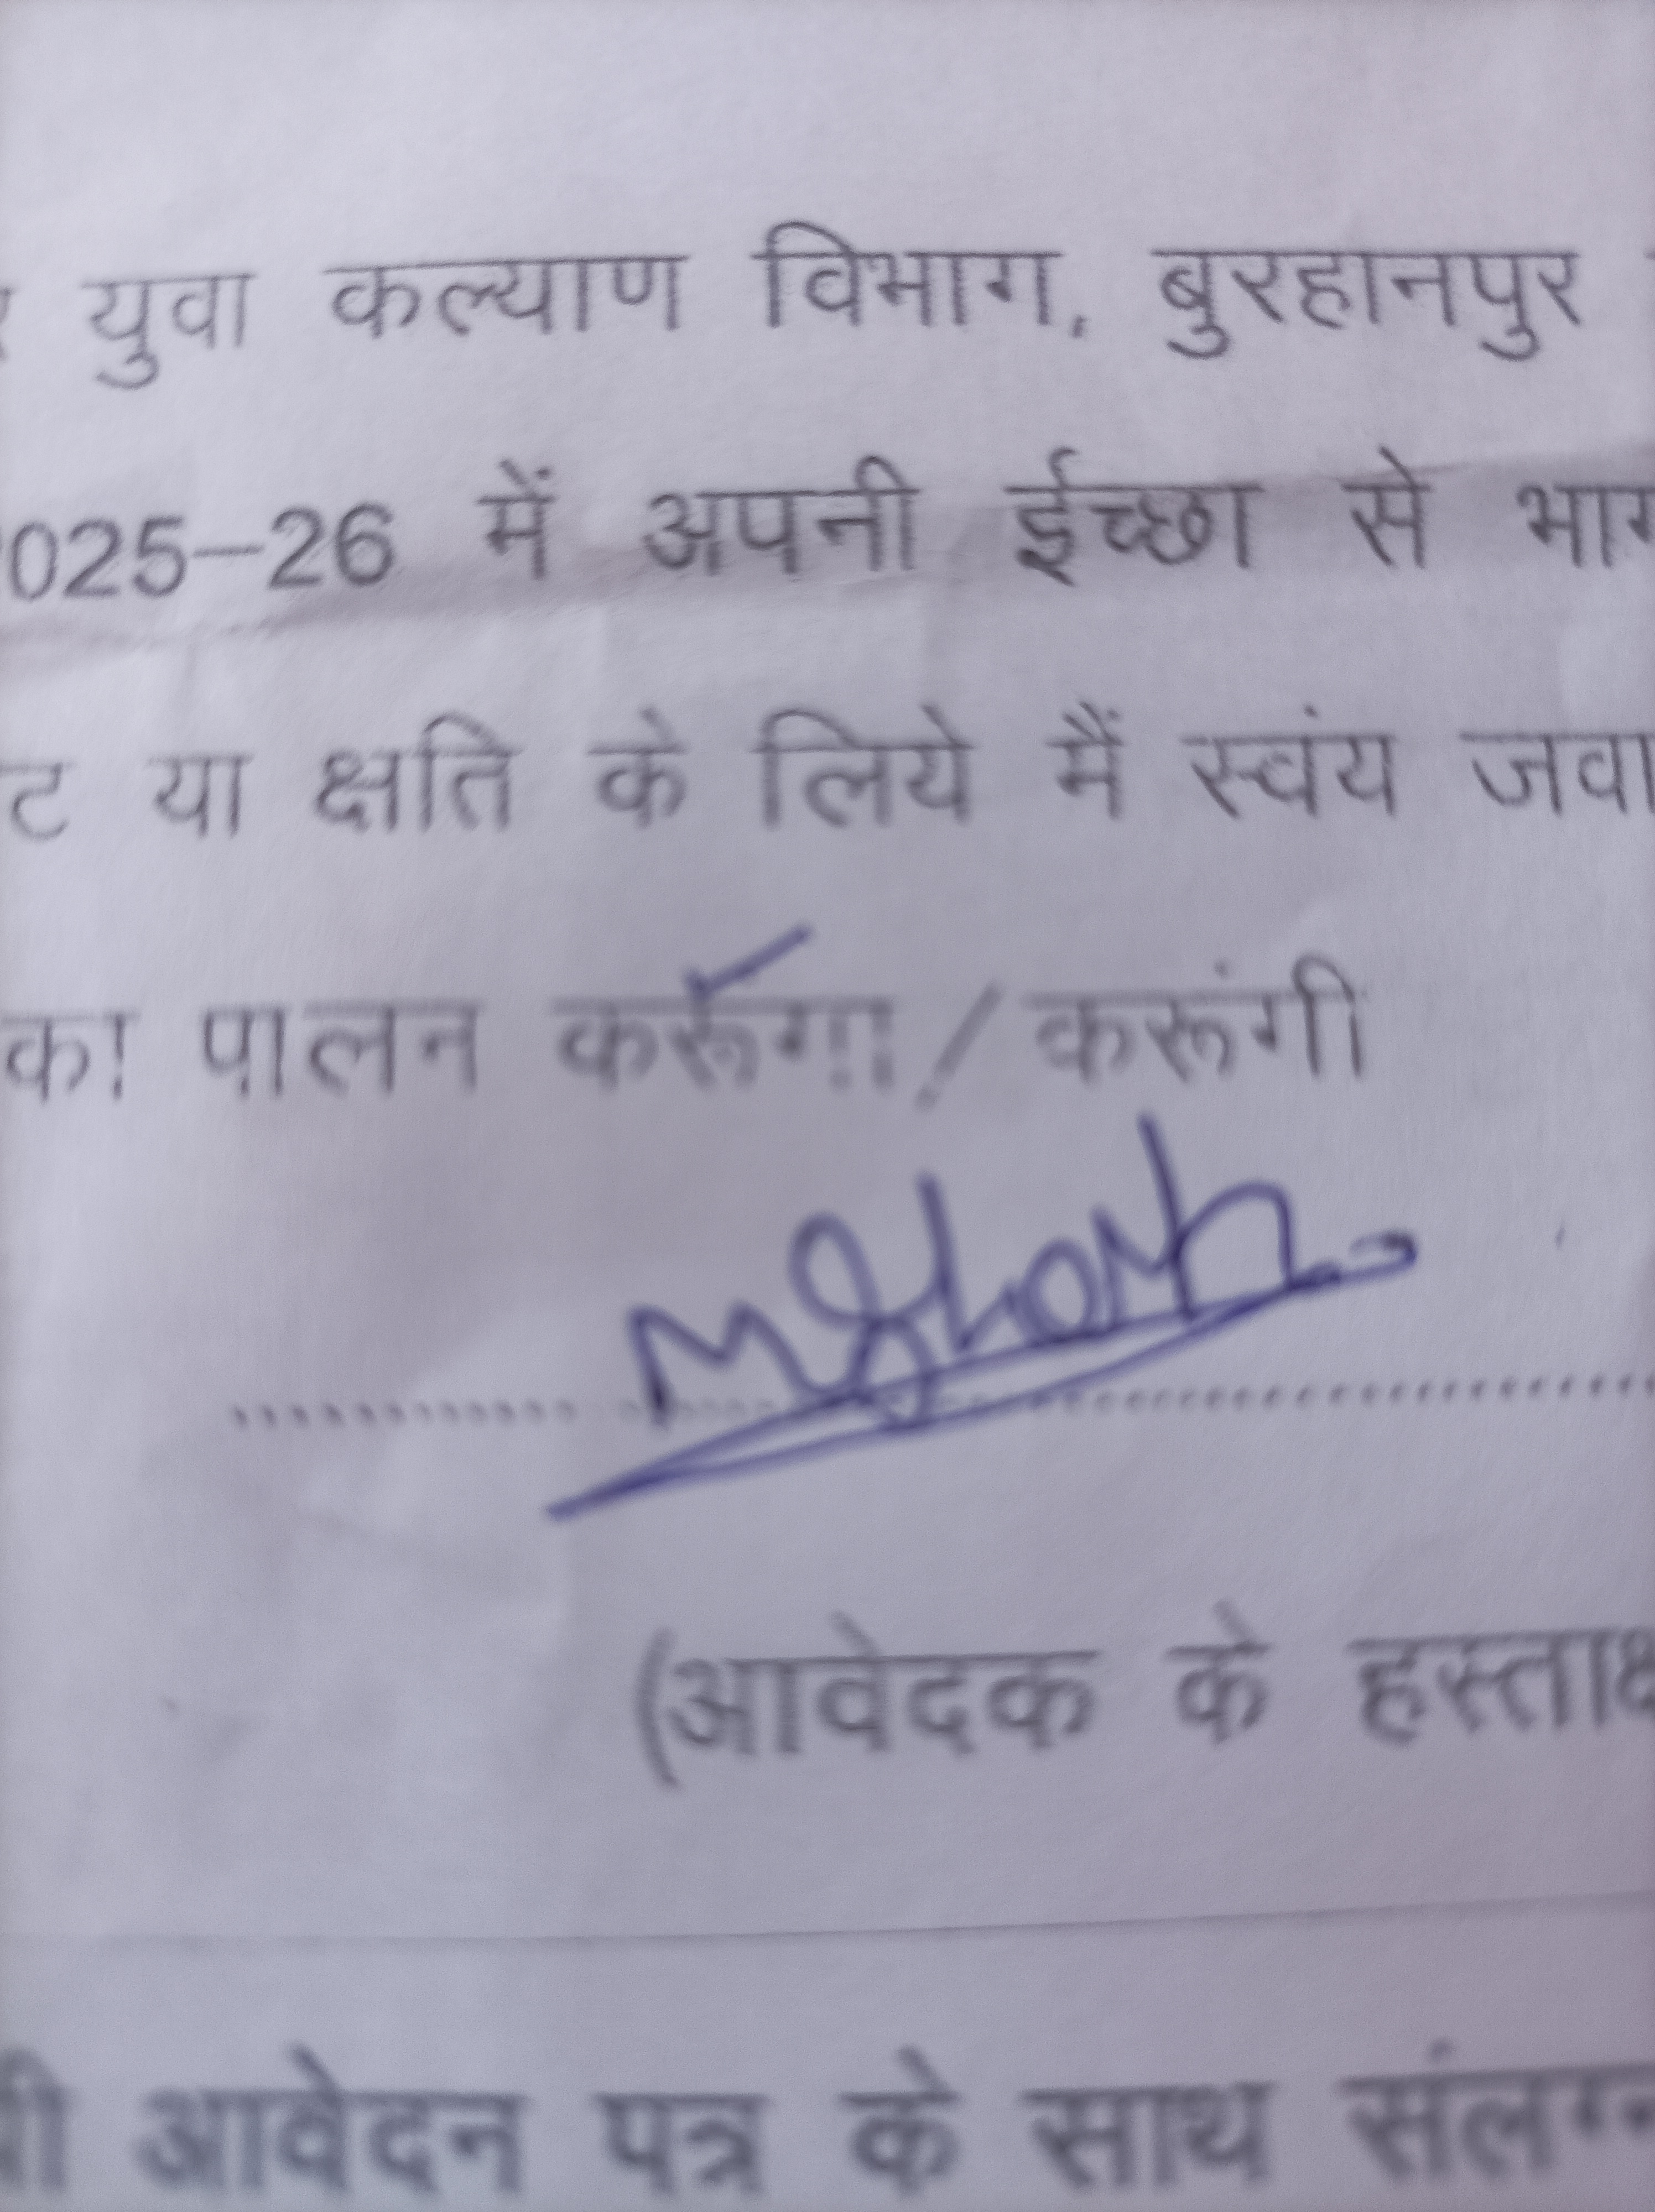 युवा कल्याण विभाग, बुरहानपुर
2025–26 में अपनी ईच्छा से भाग
या क्षति के लिये मैं स्वंय जवा
का पालन करूँगा/करूंगी
(आवेदक के हस्ताक्ष
आवेदन पत्र के साथ संलग्न